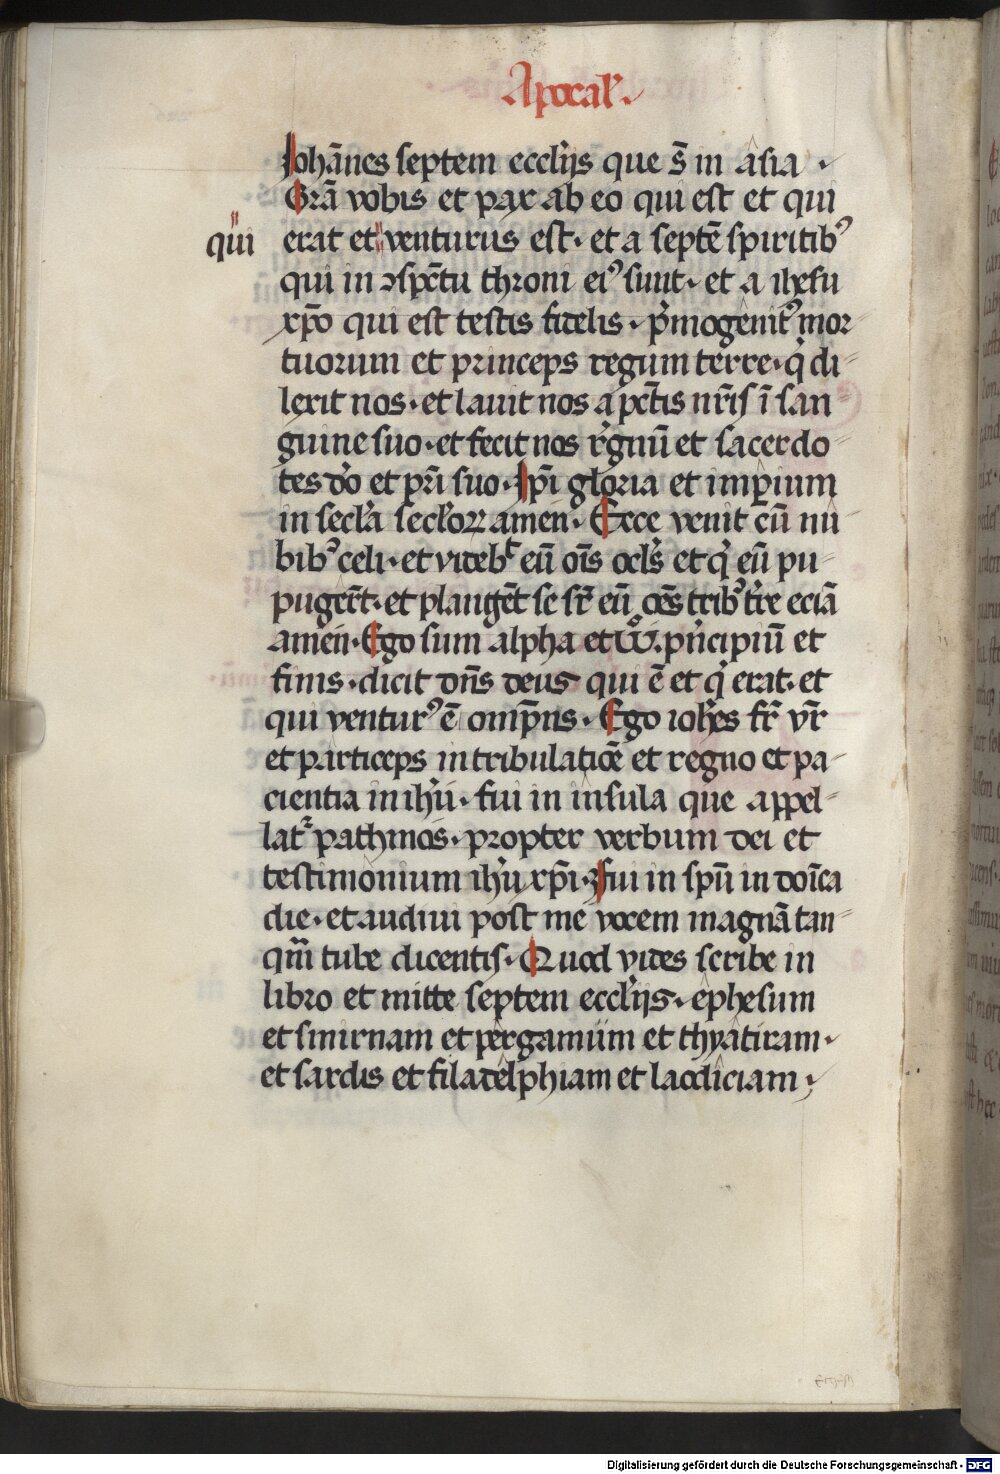 Apocal'.
Johānes septem eccl'ijs que s̄ in asia .
Grā vobis et pax ab eo qui est et qui
qui
erat et venturus est. et a septē spiritibꝰ
qui in ɔspc̄tu throni eiꝰ sunt. et a ihesu
xp̄o qui est testis fidelis. p̍mogenitꝰ mor
tuorum et princeps regum terre. q̍ di-
lexit nos. et lauit nos a pc̄tis nr̄is ī san
guine suo. et fecit nos r̍gnū et sacerdo
tes do̍ et pr̄i suo. Ip̄i gloria et imꝑium
in secl'a secl'oꝝ amen. Ecce venit cū nu
bibꝰ celi. et videbᵗ eū oīs ocl's et q̍ eū pu-
pugerūt. et plangēt se sr̄ eū oēs tribꝰ tr̍e eciā
amen. Ego sum alpha et ω. pn̍cipiū et
finis. dicit dn̄s deus qui ē et q̍ erat. et
qui venturꝰ ē omp̄ns. Ego ioh̄es fr̄ vr̄
et particeps in tribulatiōe et regno et pa-
cientia in ih̍u. fui in insula que appel-
latᷣ pathmos. propter verbum dei et
testimonium ih̍u xp̄i. Fui in sp̄u in doīca
die. et audiui post me vocem magnā tan
qm̄ tube dicentis. Quod vides scribe in
libro et mitte septem eccl'ijs. ephesum
et smirnam et pergamum et thyatiram.
et sardis et filadelphiam et laodiciam.
Digitalisierung gefördert durch die Deutsche Forschungsgemeinschaft - DFG